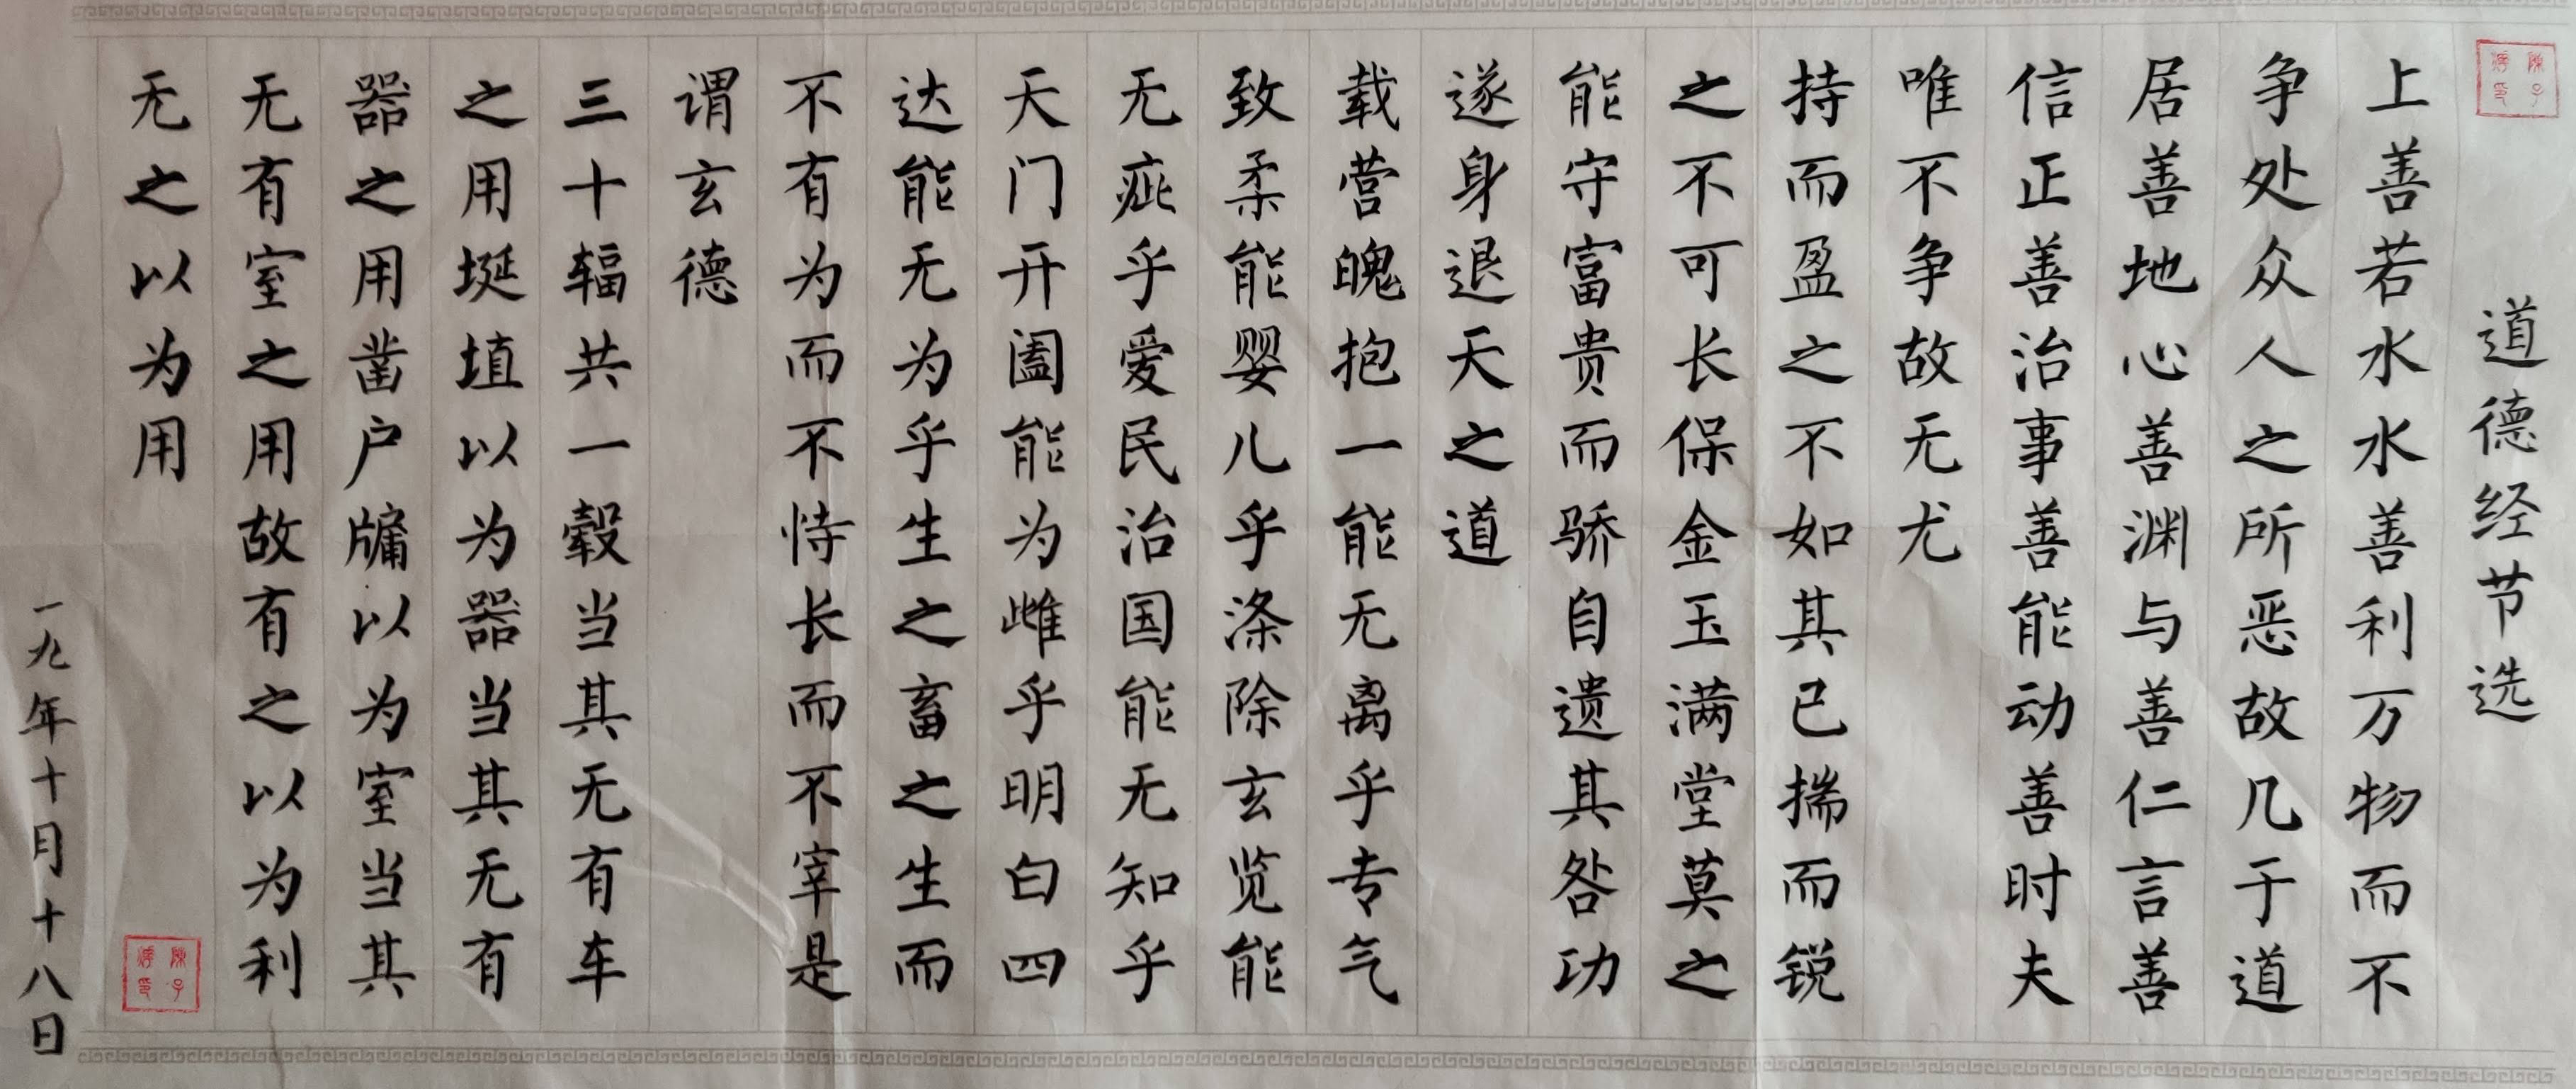 道德经节选
上善若水水善利万物而不
争处众人之所恶故几于道
居善地心善渊与善仁言善
信正善治事善能动善时夫
唯不争故无尤
持而盈之不如其已揣而锐
之不可长保金玉满堂莫之
能守富贵而骄自遗其咎功
遂身退天之道
载营魄抱一能无离乎专气
致柔能婴儿乎涤除玄览能
无疵乎爱民治国能无知乎
天门开阖能为雌乎明白四
达能无为乎生之畜之生而
不有为而不恃长而不宰是
谓玄德
三十辐共一毂当其无有车
之用埏埴以为器当其无有
器之用凿户牖以为室当其
无有室之用故有之以为利
无之以为用
一九年十月十八日